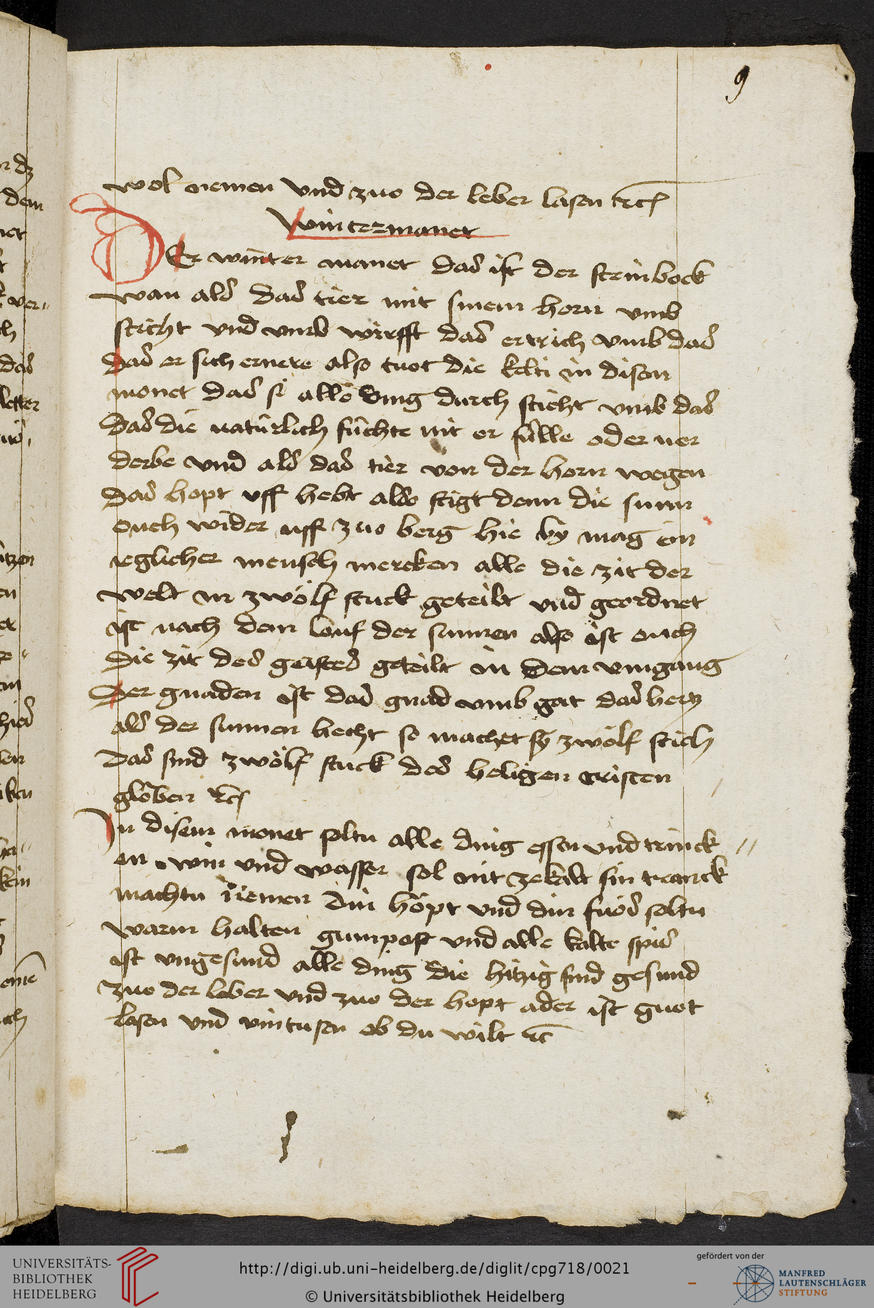 9
wol nemen vnd zuo der leber lasen etc
Wintermanet
DEr winter manet das ist der steinbock
wan als das tier mit sinem horn vmb
sticht vnd vmb wirfft das ertrich vmb das
das er sich ernere also tuot die kelti in disem
monet das si alle ding durch sticht vmb das
das die natürlich füchte nit er fulle oder ver
derbe vnd als das tier von der horn wegen
das hopt vff hebt also stigt denn die sunn
ouch wider uff zuo berg hie by mag ein
ieglicher mensch mercken alle die zit der
welt in zwölf stuck geteilt vnd geordnet
ist nach dem louf der sunnen also ist ouch
die zit des geistes geteilt in dem vmgang
der gnaden ist das gnad vmb gat das hertz
als der sunnen liecht so machet sy zwölf stich
das sind zwölf stuck des heligen cristen
glöben etc
In disem monet soltu alle ding essen vnd trinck
en win vnd wasser sol nit ze kalt sin tranck
machtu niemen din höpt vnd din füös soltu
warm halten gumpost vnd alle kalte spis
ist vngesund alle ding die hitzig sind gesund
zuo der leber vnd zuo der hopt ader ist guot
lasen vnd vintusen ob du wilt etc
UNIVERSITÄTS-
BIBLIOTHEK
HEIDELBERG
http://digi.ub.uni-heidelberg.de/diglit/cpg718/0021
© Universitätsbibliothek Heidelberg
gefördert von der
MANFRED
LAUTENSCHLÄGER
STIFTUNG